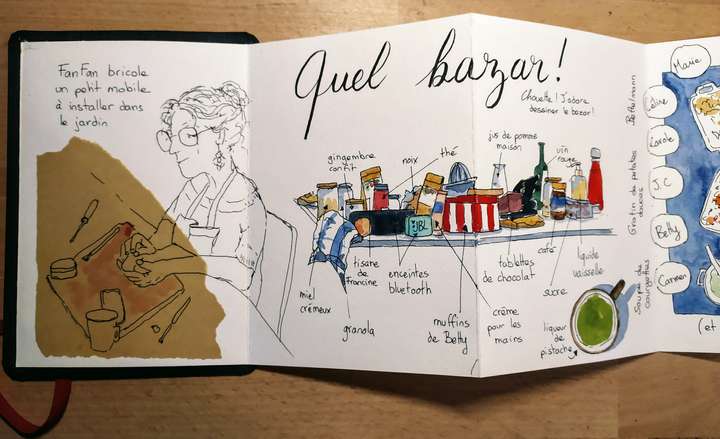 FanFan bricole
un petit mobile
à installer dans
le jardin
Quel bazar!
Chouette! J'adore
dessiner le bazar!
gingembre
confit
noix
thé
jus de pomme
maison
vin
rouge
JBL
miel
crémeux
tisane
de
francine
granola
enceintes
bluetooth
muffins
de Betty
crème
pour les
mains
tablettes
de chocolat
café
sucre
liquide
vaisselle
liqueur
de
pistache
Bethmann
Gratin de patates
douces
Soupe de
courgettes
Marie
Céline
Carole
J.C
Betty
Carmen
(et